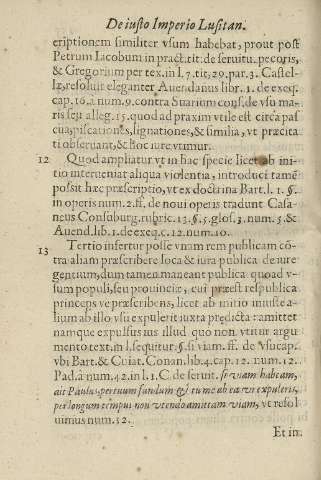 De iusto Imperio Lusitan.
criptionem similiter vsum habebat, prout post
Petrum Iacobum in pract. tit. de seruitu. pecoris,
& Gregorium per tex. in l. 7. tit. 29. par. 3. Castel-
læ, resoluit eleganter Auendanus libr. 1. de exeq.
cap. 10. à num. 9. contra Suarium cons. de vsu ma-
ris seu alleg. 15. quod ad praxim vtile est circa pas
cua, piscationes, lignationes, & similia, vt præcita
ti obseruant, & hoc iure vtimur.
12 Quod ampliatur vt in hac specie licet ab ini-
tio interueniat aliqua violentia, introduci tamẽ
possit hæc præscriptio, vt ex doctrina Bart. l. 1. §.
in operis num. 2. ff. de noui operis tradunt Casa
neus Consuburg. rubric. 13. §. 5. glos. 3. num. 5. &
Auend. lib. 1. de exeq. c. 12. num. 10.
13 Tertio infertur posse vnam rem publicam cõ-
tra aliam præscribere loca & iura publica de iure
gentium, dum tamen maneant publica quoad v-
sum populi, seu prouinciæ, cui præest respublica
princeps ve præscribens, licet ab initio iniuste a-
lium ab illo vsu expulerit iuxta prædicta: amittet
namque expulsus ius illud quo non vtitur argu
mento text. in l. sequitur. §. si viam. ff. de Vsucap.
vbi Bart. & Cuiat. Conan. lib. 4. cap. 12. num. 12.
Pad. à num. 42. in l. 1. C. de seruit. si viam habeam,
ait Paulus, per tuum fundum & tu me ab ea vi expuleris,
per longum tempus non vtendo amittam viam, vt resol
uimus num. 52.
Et in.